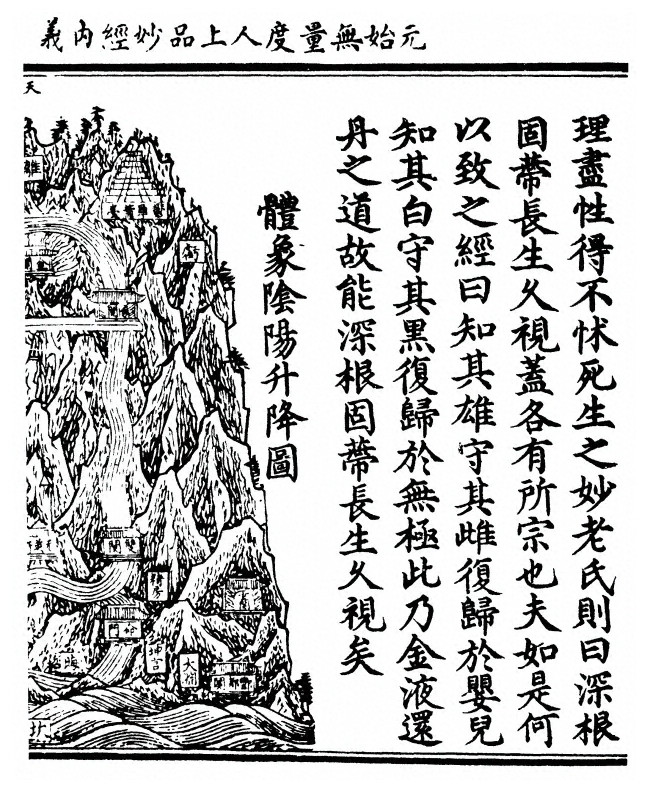 元始無量度人上品妙經內義
理盡性得不怵死生之妙老氏則曰深根
固蔕長生久視蓋各有所宗也夫如是何
以致之經曰知其雄守其雌復歸於嬰兒
知其白守其黑復歸於無極此乃金液還
丹之道故能深根固蔕長生久視矣
體象陰陽升降圖
天
雙關
坤宮